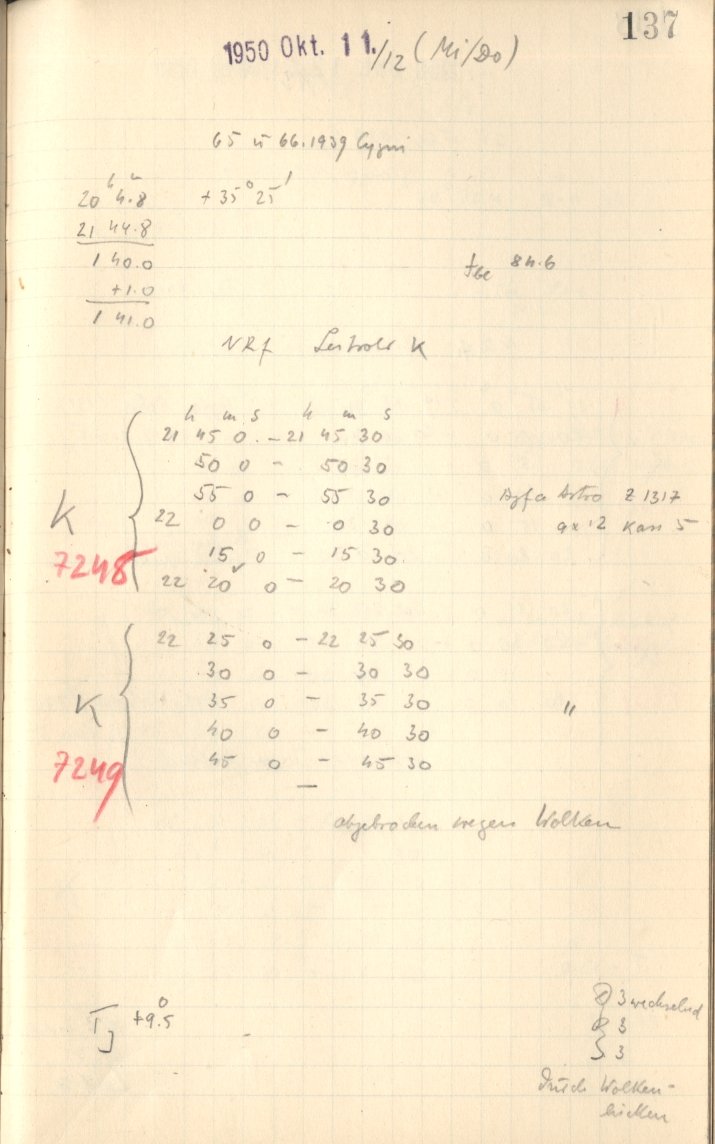 137
1950 Okt. 11./12 (Mi/Do)
65 u 66.1939 Cygni
20 h 4.8 m +35° 25'
21 44.8
1 40.0
+1.0
1 41.0
84.6
K
h m s h m s
21 45 0 - 21 45 30
50 0 - 50 30
55 0 - 55 30
Agfa Astro Z 1317
22 0 0 - 0 30
9x12 Kass 5
15 0 - 15 30
22 20 0 - 20 30
K
7248
22 25 0 - 22 25 30
30 0 - 30 30
35 0 - 35 30
"
40 0 - 40 30
45 0 - 45 30
—
K
7249
abgebrochen wegen Wolken
+9.5°
3 wechselnd
3
3
Durch Wolken-
lücken